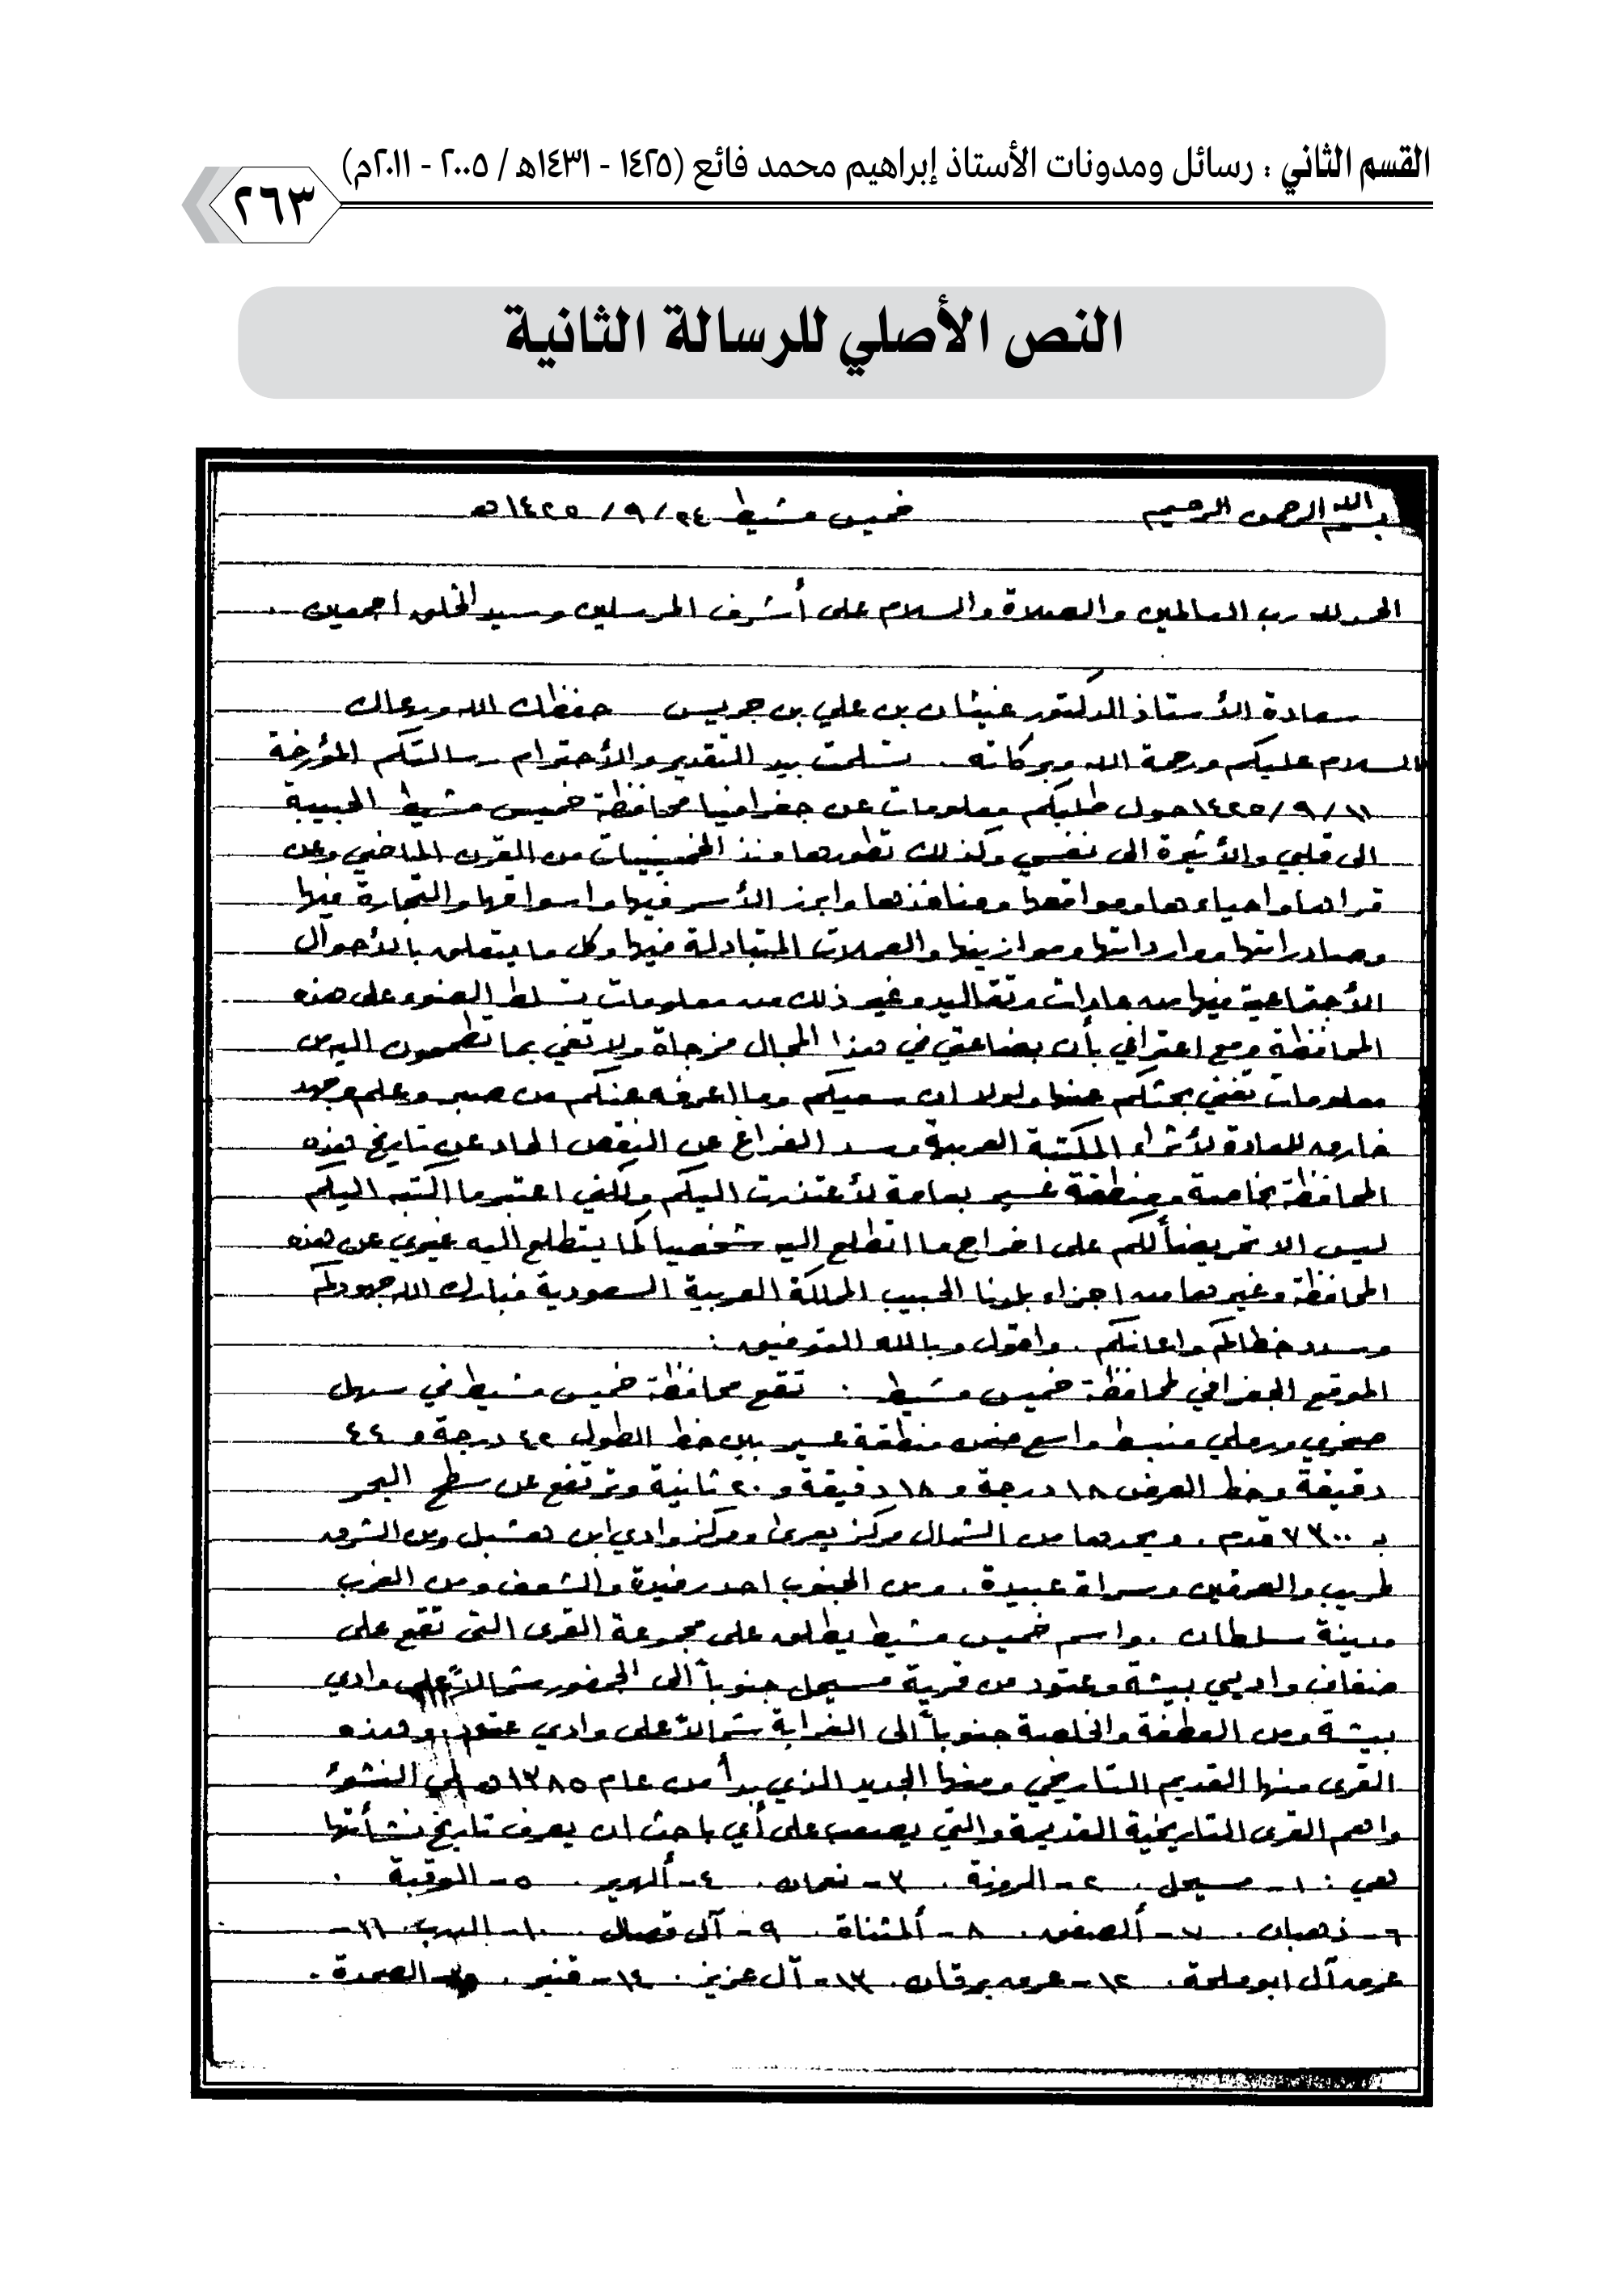 القسم الثاني : رسائل ومدونات الأستاذ إبراهيم محمد فائع (١٤٢٥ - ١٤٣١هـ / ٢٠٠٥ - ٢٠١١م)
٢٦٣
النص الأصلي للرسالة الثانية
بسم الله الرحمن الرحيم خميس مشيط ٢٤/٩/١٤٢٥هـ
الحمد لله رب العالمين والصلاة والسلام على أشرف المرسلين وسيد الخلق اجمعين .
سعادة الأستاذ الدكتور غيثان بن علي بن جريس حفظك الله ورعاك
السلام عليكم ورحمة الله وبركاته . تسلمت بيد التقدير والأحترام رسالتكم المؤرخة
١١/٩/١٤٢٥ حول طلبكم معلومات عن جغرافيا محافظة خميس مشيط الحبيبة
الى قلبي والأثيرة الى نفسي وكذلك تطورها منذ الخمسينيات من القرن الماضي وعن
قراها واحياءها ومواقعها ومنافذها وابرز الأسر فيها واسواقها والتجارة فيها
وصادراتها ووارداتها وموازينها والعملات المتبادلة فيها وكل ما يتعلق بالأحوال
الأجتماعية فيها من عادات وتقاليد وغير ذلك من معلومات تسلط الضوء على هذه
المحافظة ومع اعترافي بأن بضاعتي في هذا المجال مزجاة ولا تفي بما تطمحون اليه من
معلومات تغني بحثكم عنها ولولا ان سعيكم وما اعرفه عنكم من صبر وعلم وجهد
خارق للعادة لأثراء المكتبة العربية وسد الفراغ عن النقص الحاد عن تاريخ هذه
المحافظة بخاصة ومنطقة عسير بعامة لأعتذرت اليكم ولكني اعتبر ما اكتبه اليكم
ليس الا تحريضاً لكم على اخراج ما اتطلع اليه شخصيا كما يتطلع اليه غيري عن هذه
المحافظة وغيرها من اجزاء بلدنا الحبيب المملكة العربية السعودية فبارك الله جهودكم
وسدد خطاكم واعانكم . واقول وبالله التوفيق :
الموقع الجغرافي لمحافظة خميس مشيط : تقع محافظة خميس مشيط في سهل
صخري ورملي منبسط واسع ضمن منطقة عسير بين خط الطول ٤٢ درجة و ٤٤
دقيقة وخط العرض ١٨ درجة و ١٨ دقيقة و ٢٠ ثانية وترتفع عن سطح البحر
بـ ٧٣٠٠ قدم . ويحدها من الشمال مركز يعرى ومركز وادي ابن هشبل ومن الشرق
طريب والعرقين وسراة عبيدة . ومن الجنوب احد رفيدة والشعف ومن الغرب
مدينة سلطان . واسم خميس مشيط يطلق على مجموعة القرى التي تقع على
ضفاف واديي بيشة وعتود من قرية مسيحل جنوباً الى الحضور شمالاً على وادي
بيشة ومن العطفة والخلصة جنوباً الى الغرابة شمالاً على وادي عتود . وهذه
القرى منها القديم التاريخي ومنها الجديد الذي بدأ من عام ١٣٨٥هـ في النشوء
واهم القرى التاريخية القديمة والتي يصعب على أي باحث ان يعرف تاريخ نشأتها
هي : ١- مسيحل . ٢- الرونة . ٣- نعمان . ٤- ألهرير . ٥- الوقبة .
٦- ذهبان . ٧- ألصفق . ٨- ألمثناة . ٩- آل قصال . ١٠- الدرب . ١١-
عرق آل ابوملحة . ١٢- عرق برقان . ١٣- آل عزيز . ١٤- قنبر . الصمدة .